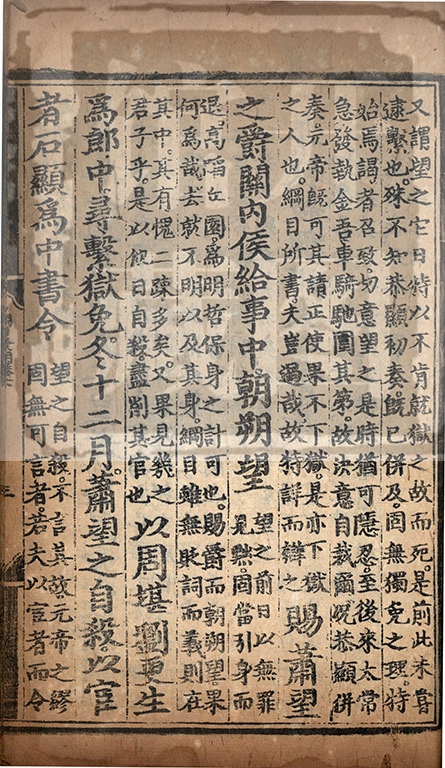 又謂望之它日特以不肯就獄之故而死是前此未嘗
逮繫也殊不知恭顯初奏旣已併及固無獨免之理特
始焉謁者召致切意望之是時猶可隱忍至後來太常
急發執金吾車騎馳圍其第故決意自裁爾況恭顯併
奏元帝旣可其請正使果不下獄是亦下獄
之人也綱目所書夫豈過哉故特詳而辯之
賜蕭望
之爵關內侯給事中朝朔望
望之前日以無罪
見黜固當引身而
退高蹈丘園爲明哲保身之計可也賜爵而朝朔望果
何爲哉去就不明以及其身綱目雖無貶詞而義則在
其中矣有愧二疎多矣又果見幾之
君子乎是以飲日自殺盡削其官也
以周堪劉更生
爲郎中尋繫獄免冬十二月蕭望之自殺以宦
者石顯爲中書令
望之自殺不言其故元帝之繆
固無可言者若夫以宦者而令